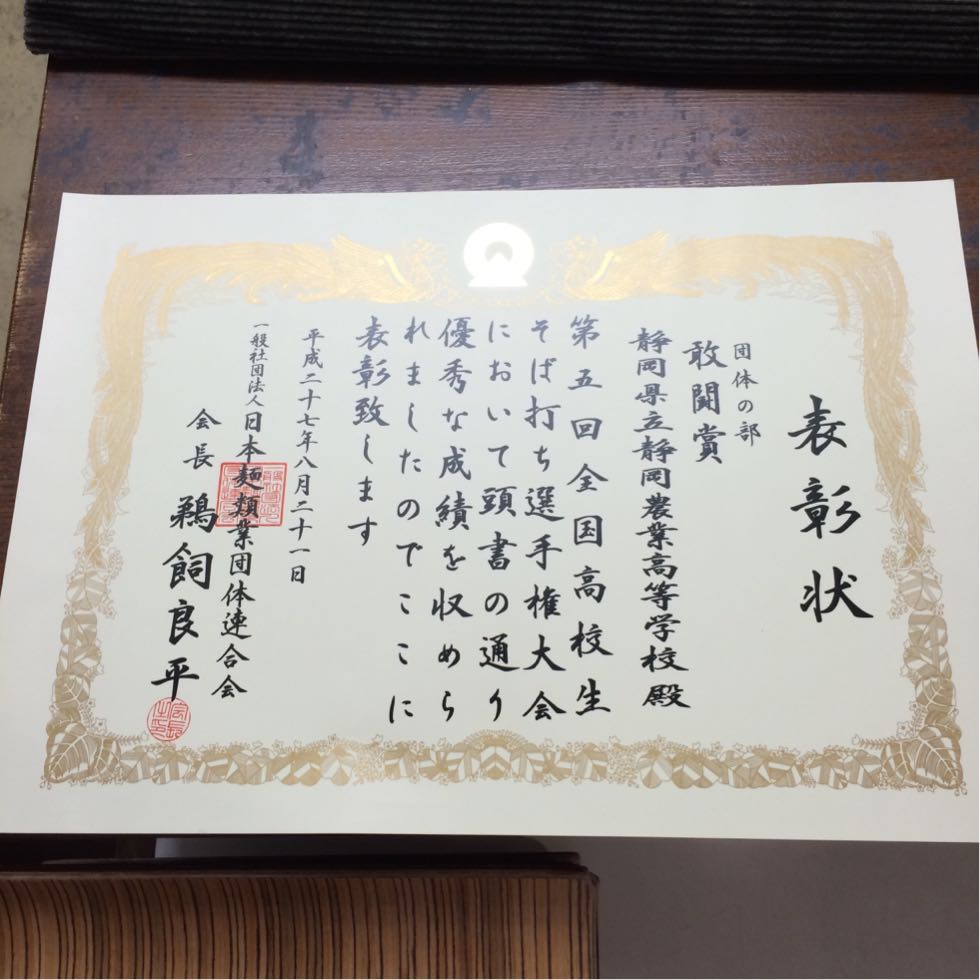 表彰状
団体の部
敢闘賞
静岡県立静岡農業高等学校殿
第五回全国高校生
そば打ち選手権大会
において頭書の通り
優秀な成績を収めら
れましたのでここに
表彰致します
平成二十七年八月二十一日
一般社団法人日本麺類業団体連合会
会長 鵜飼良平